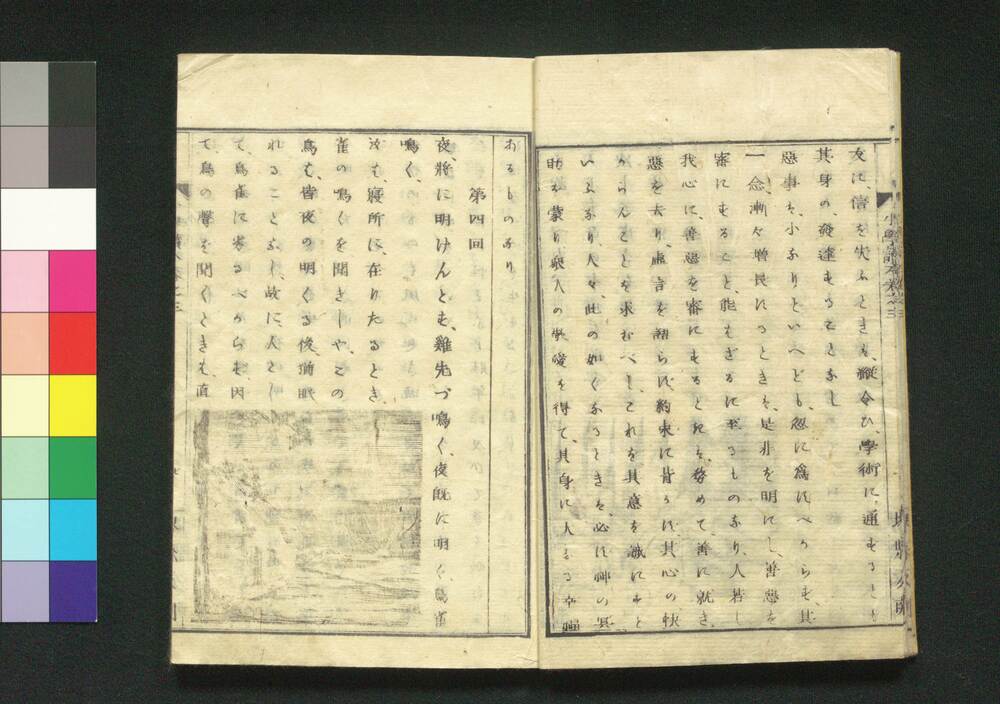 友に、信を失ふときも、縱令ひ、學術に、通ずるとも
其身の、發達することなし
惡事も、小なりといへども、忽に爲すべからず、其
一念漸々増長するときは、是非を明にし、善惡を
審にすること、能はざるに至るものなり、人若し
我心に、善惡を審にするときは、務めて、善に就き、
惡を去り、虚言を語らず、約束に背かず、其心の快
からんことを求むべし、これを其意を誠にすと
いふなり、人々、此の如くなるときは、必ず神の冥
助を蒙り衆人の
を得て、其身に
小學讀本卷之三
あるものなり
第四回
夜、將に明けんとす、雞先づ鳴く、夜既に明く、烏雀
鳴く、
汝も、寢所に、在りたるとき、
雀の鳴くを聞きしや、この
鳥も、皆夜の明くる後、猶眠
れることなし、故に、人とし
て、鳥雀に劣るべからず、因
て、鳥の聲を聞くときは、直